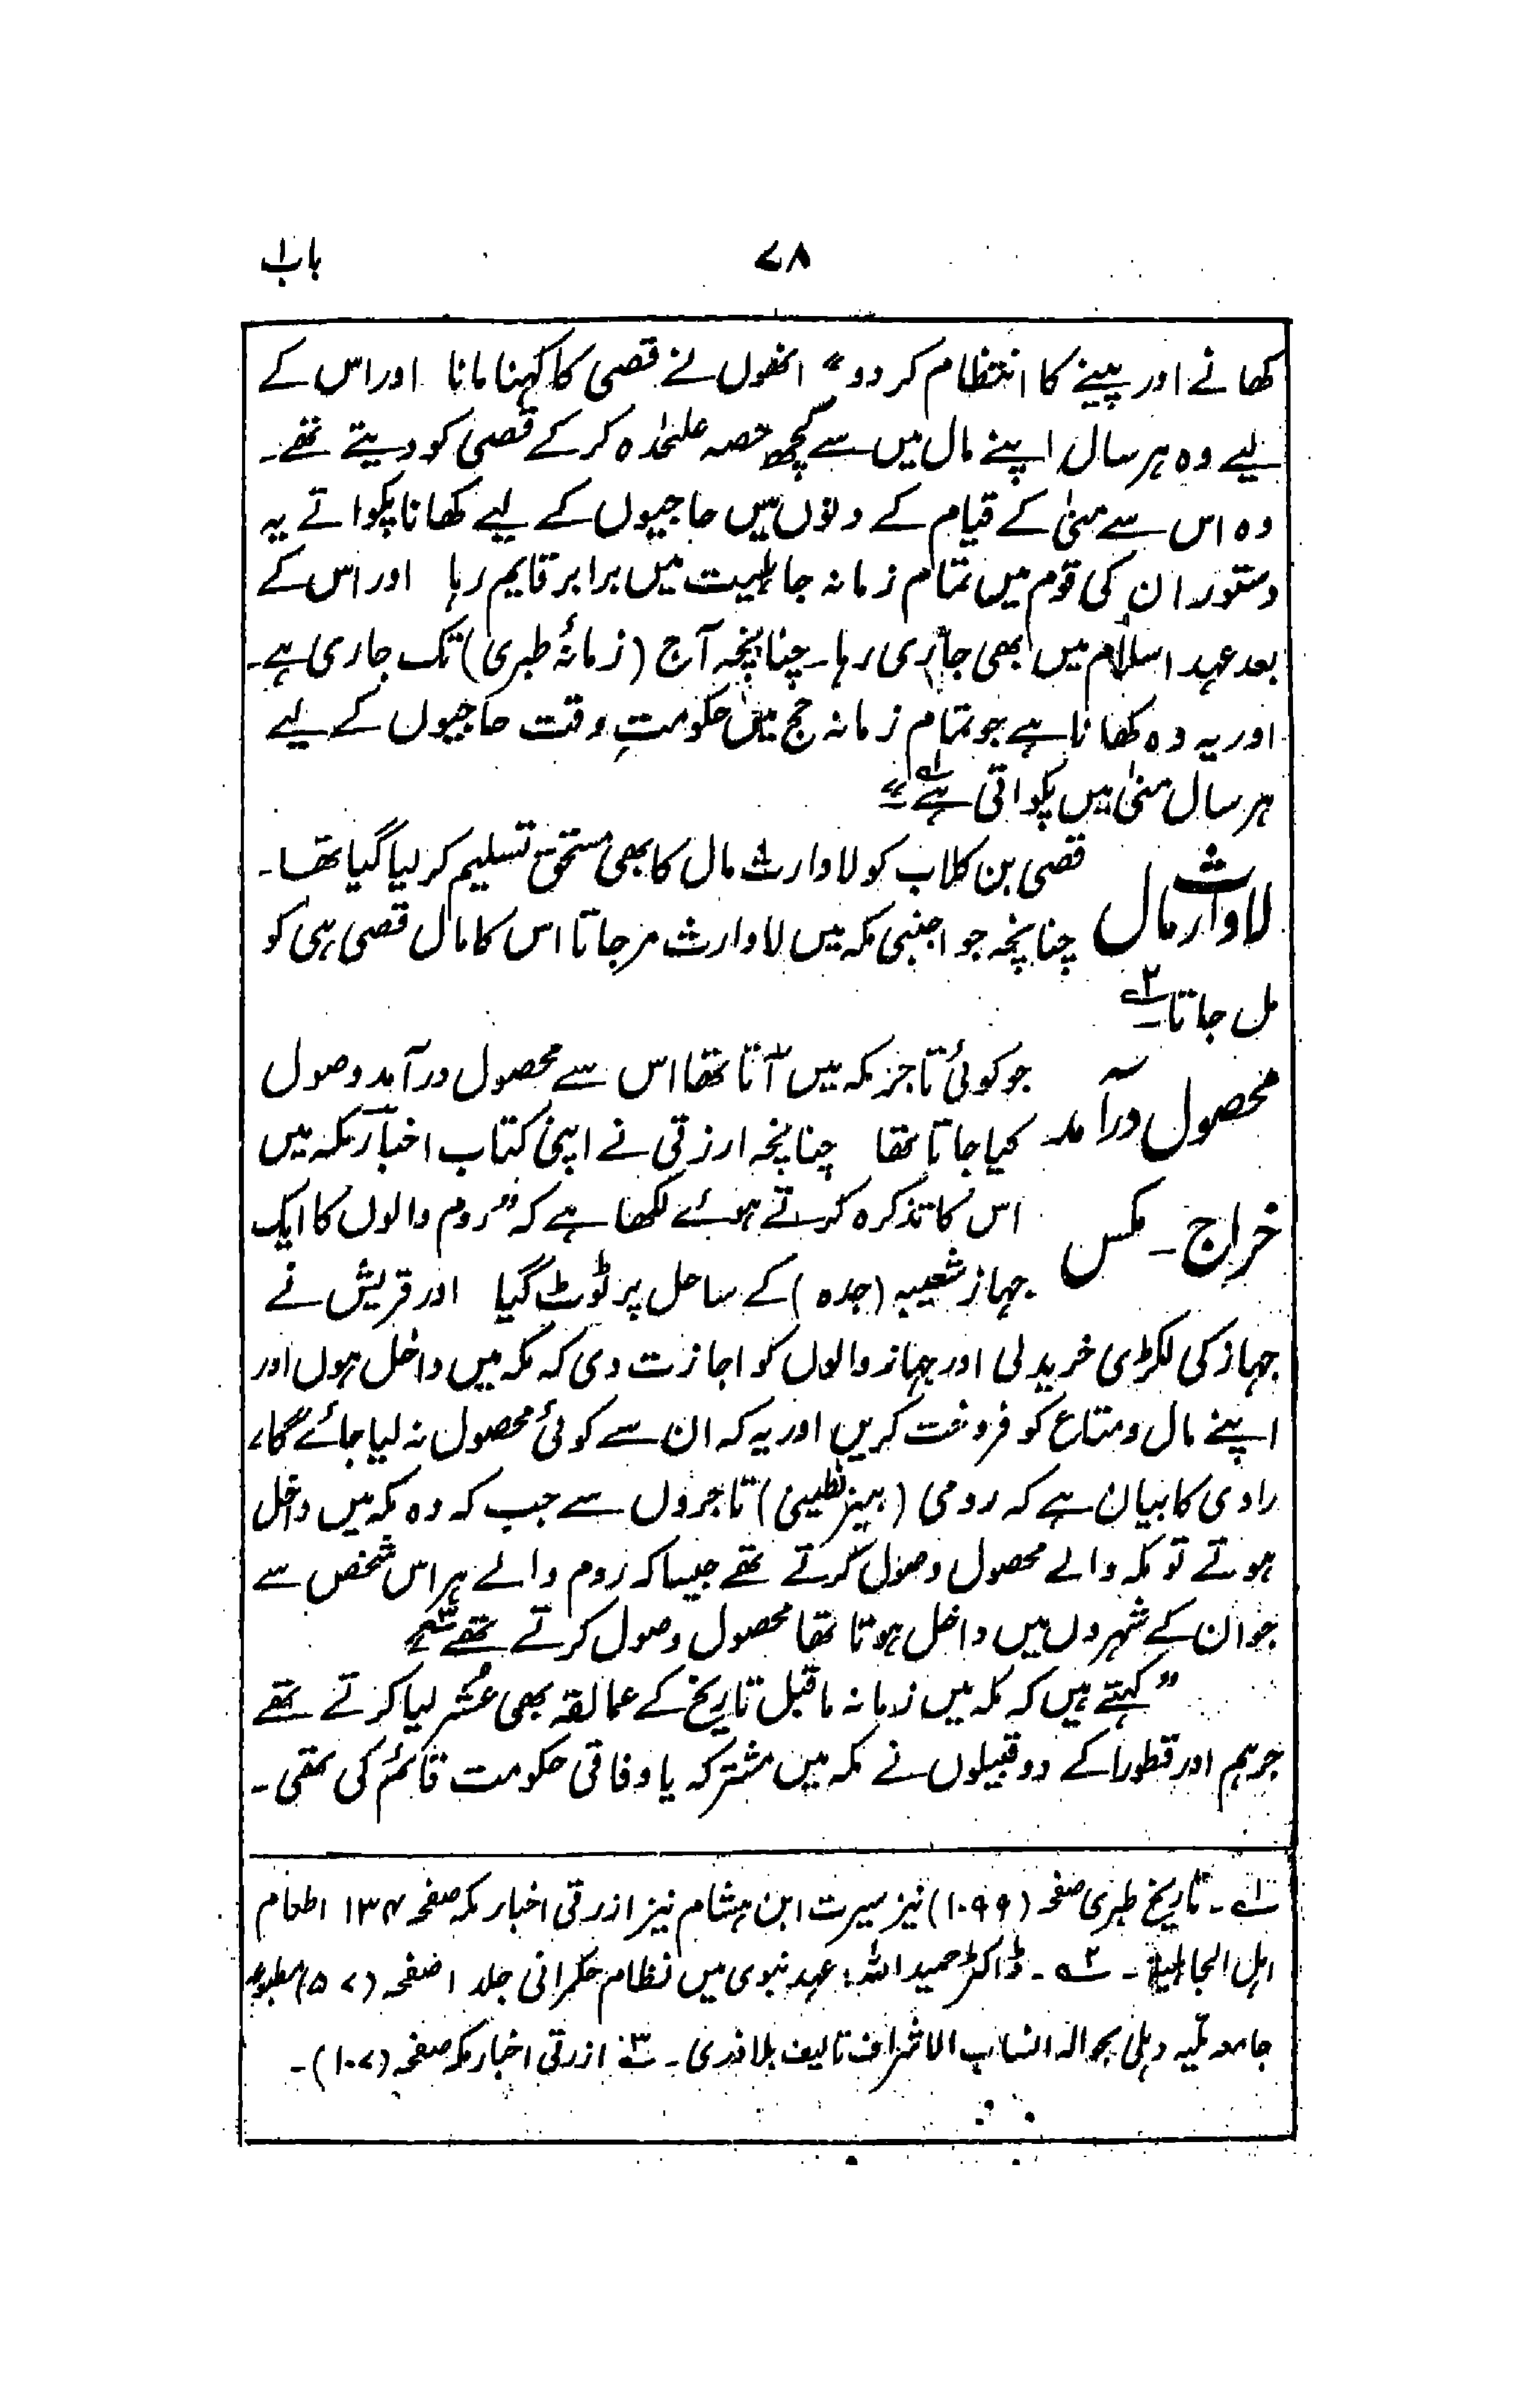 باب ۱
۷۸
کھانے اور پینے کا انتظام کر دو“ انھوں نے قصی کا کہنا مانا اور اس کے
لیے وہ ہر سال اپنے مال میں سے کچھ حصہ علٰحدہ کر کے قصی کو دیتے تھے۔
وہ اس سے منیٰ کے قیام کے دنوں میں حاجیوں کے لیے کھانا پکواتے یہ
دستور ان کی قوم میں تمام زمانہ جاہلیت میں برابر قایم رہا اور اس کے
بعد عہد اسلام میں بھی جاری رہا۔ چنانچہ آج (زمانۂ طبری) تک جاری ہے۔
اور یہ وہ کھانا ہے جو تمام زمانہ حج میں حکومتِ وقت حاجیوں کے لیے
ہر سال منیٰ میں پکواتی ہے“ ۱؎
لاوارث مال
قصی بن کلاب کو لاوارث مال کا بھی مستحق تسلیم کر لیا گیا تھا۔
چنانچہ جو اجنبی مکہ میں لاوارث مر جاتا اس کا مال قصی ہی کو
مل جاتا۔ ۲؎
محصول درآمد
خراج۔ مکس
جو کوئی تاجر مکہ میں آتا تھا اس سے محصول درآمد وصول
کیا جاتا تھا چنانچہ ارزقی نے اپنی کتاب اخبار مکہ میں
اس کا تذکرہ کرتے ہوئے لکھا ہے کہ ”روم والوں کا ایک
جہاز شعیبہ (جدہ) کے ساحل پر ٹوٹ گیا اور قریش نے
جہاز کی لکڑی خرید لی اور جہاز والوں کو اجازت دی کہ مکہ میں داخل ہوں اور
اپنے مال و متاع کو فروخت کریں اور یہ کہ ان سے کوئی محصول نہ لیا جائے گا،
راوی کا بیان ہے کہ رومی (بیزنطینی) تاجروں سے جب کہ وہ مکہ میں داخل
ہوتے تو مکہ والے محصول وصول کرتے تھے جیسا کہ روم والے ہر اس شخص سے
جو ان کے شہروں میں داخل ہوتا تھا محصول وصول کرتے تھے ۳؎
”کہتے ہیں کہ مکہ میں زمانہ ماقبل تاریخ کے عمالقہ بھی عُشر لیا کرتے تھے
جرہم اور قطورا کے دو قبیلوں نے مکہ میں مشترکہ یا وفاقی حکومت قائم کی تھی۔
۱؎۔ تاریخ طبری صفحہ (۱۰۹۹) نیز سیرت ابن ہشام نیز ازرقی اخبار مکہ صفحہ ۱۳۴ اطعام
اہل الجاہلیۃ۔ ۲؎۔ ڈاکٹر حمید اللہ: عہد نبوی میں نظام حکمرانی جلد ۱ صفحہ (۵۷) مطبوعہ
جامعہ ملیہ دہلی بحوالہ انساب الاشراف تالیف بلاذری۔ ۳؎ ازرقی اخبار مکہ صفحہ (۱۰۷)۔